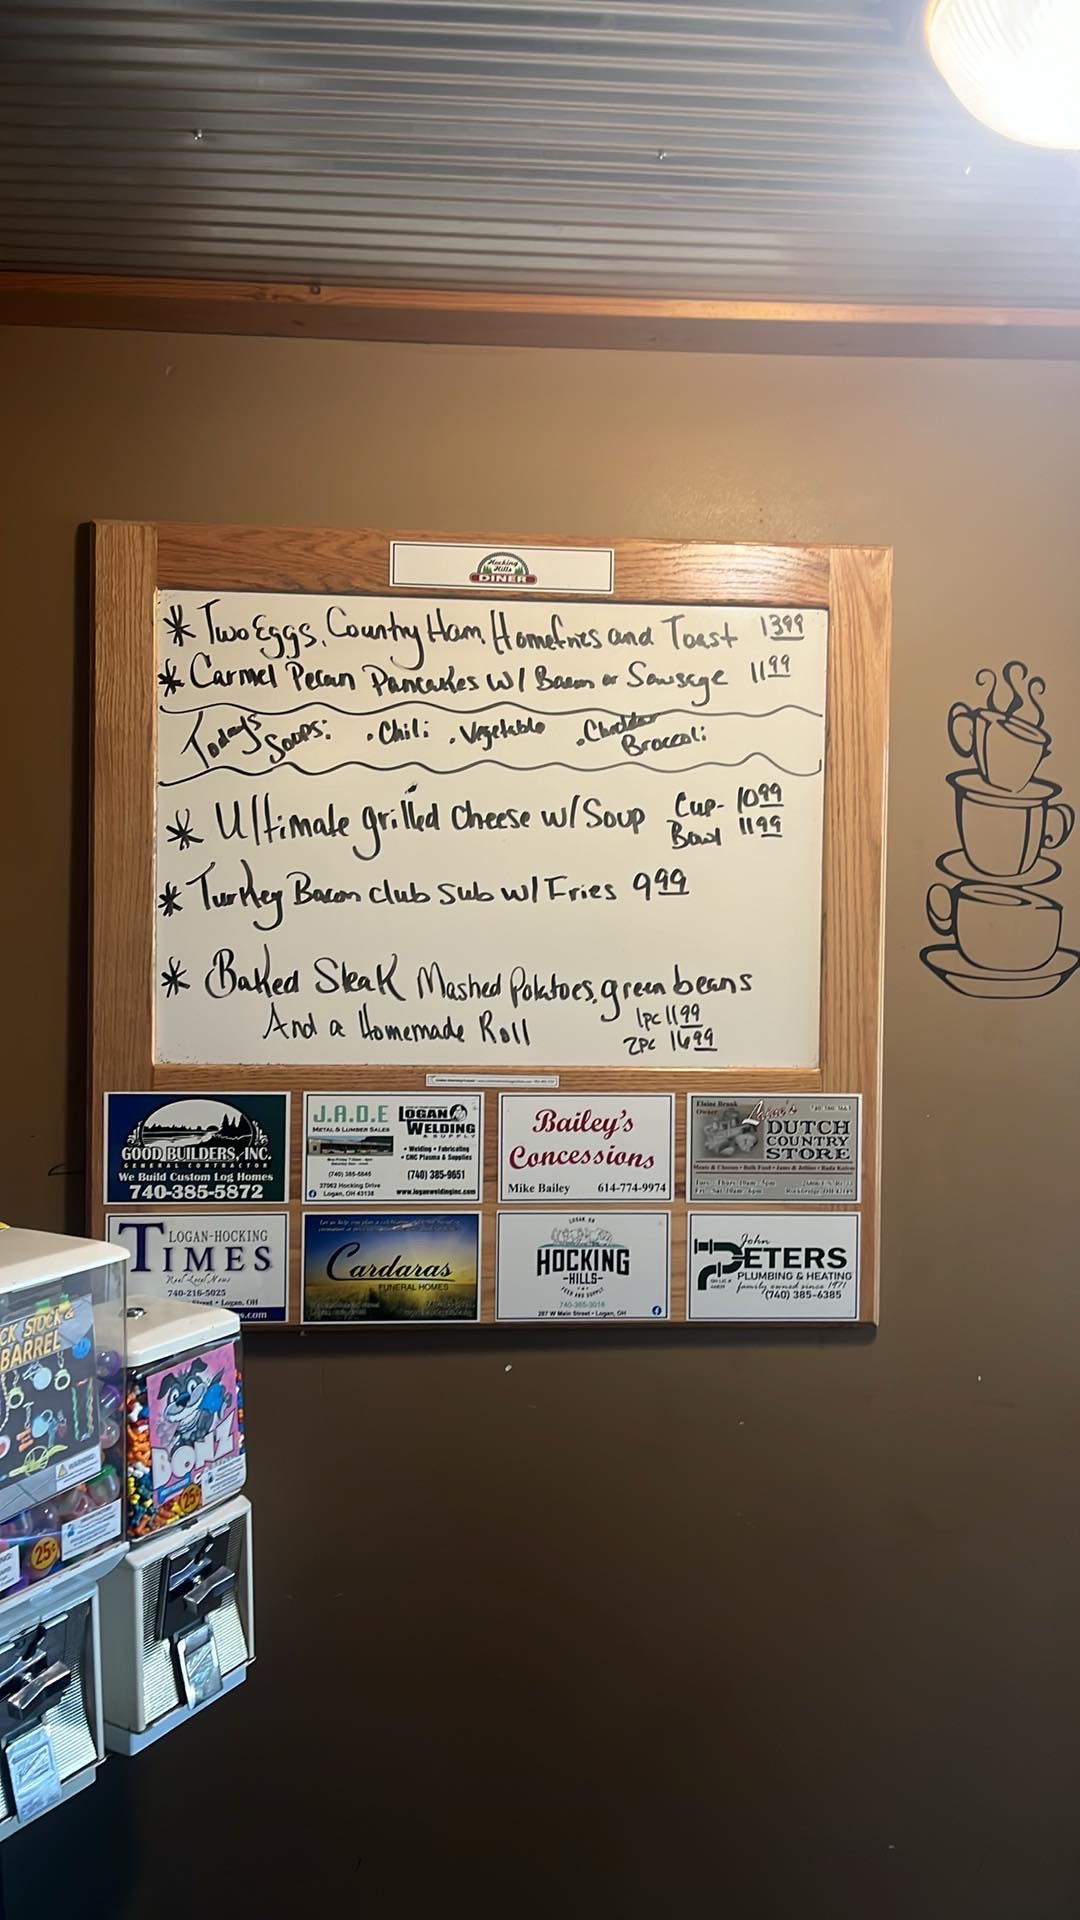 Hocking
Hills
DINER
* Two Eggs, Country Ham, Homefries and Toast 13 99
* Carmel Pecan Pancakes w/ Bacon or Sausage 11 99
Todays Soups: . Chili . Vegetable . Cheddar Broccoli
* Ultimate grilled Cheese w/ Soup Cup- 10 99
Bowl 11 99
* Turkey Bacon club sub w/ Fries 9 99
* Baked Steak Mashed Potatoes, green beans
And a Homemade Roll 1pc 11 99
2pc 16 99
GOOD BUILDERS, INC.
GENERAL CONTRACTOR
We Build Custom Log Homes
740-385-5872
J.A.D.E
METAL & LUMBER SALES
(740) 385-5845
37962 Hocking Drive
Logan, OH 43138
LOGAN
WELDING
& SUPPLY
• Welding • Fabricating
• CNC Plasma & Supplies
(740) 385-9651
www.loganweldinginc.com
Bailey's
Concessions
Mike Bailey 614-774-9974
Elaine Brank
Owner
DUTCH
COUNTRY
STORE
LOGAN-HOCKING
TIMES
Real Local News
740-216-5025
Street • Logan, OH
Cardaras
FUNERAL HOMES
LOGAN, OH
HOCKING
-HILLS-
FEED AND SUPPLY
740-385-3018
287 W Main Street • Logan, OH
John
PETERS
PLUMBING & HEATING
family owned since 1971
(740) 385-6385
CK STOCK &
BARREL
WARNING:
25¢
BONZ
25¢